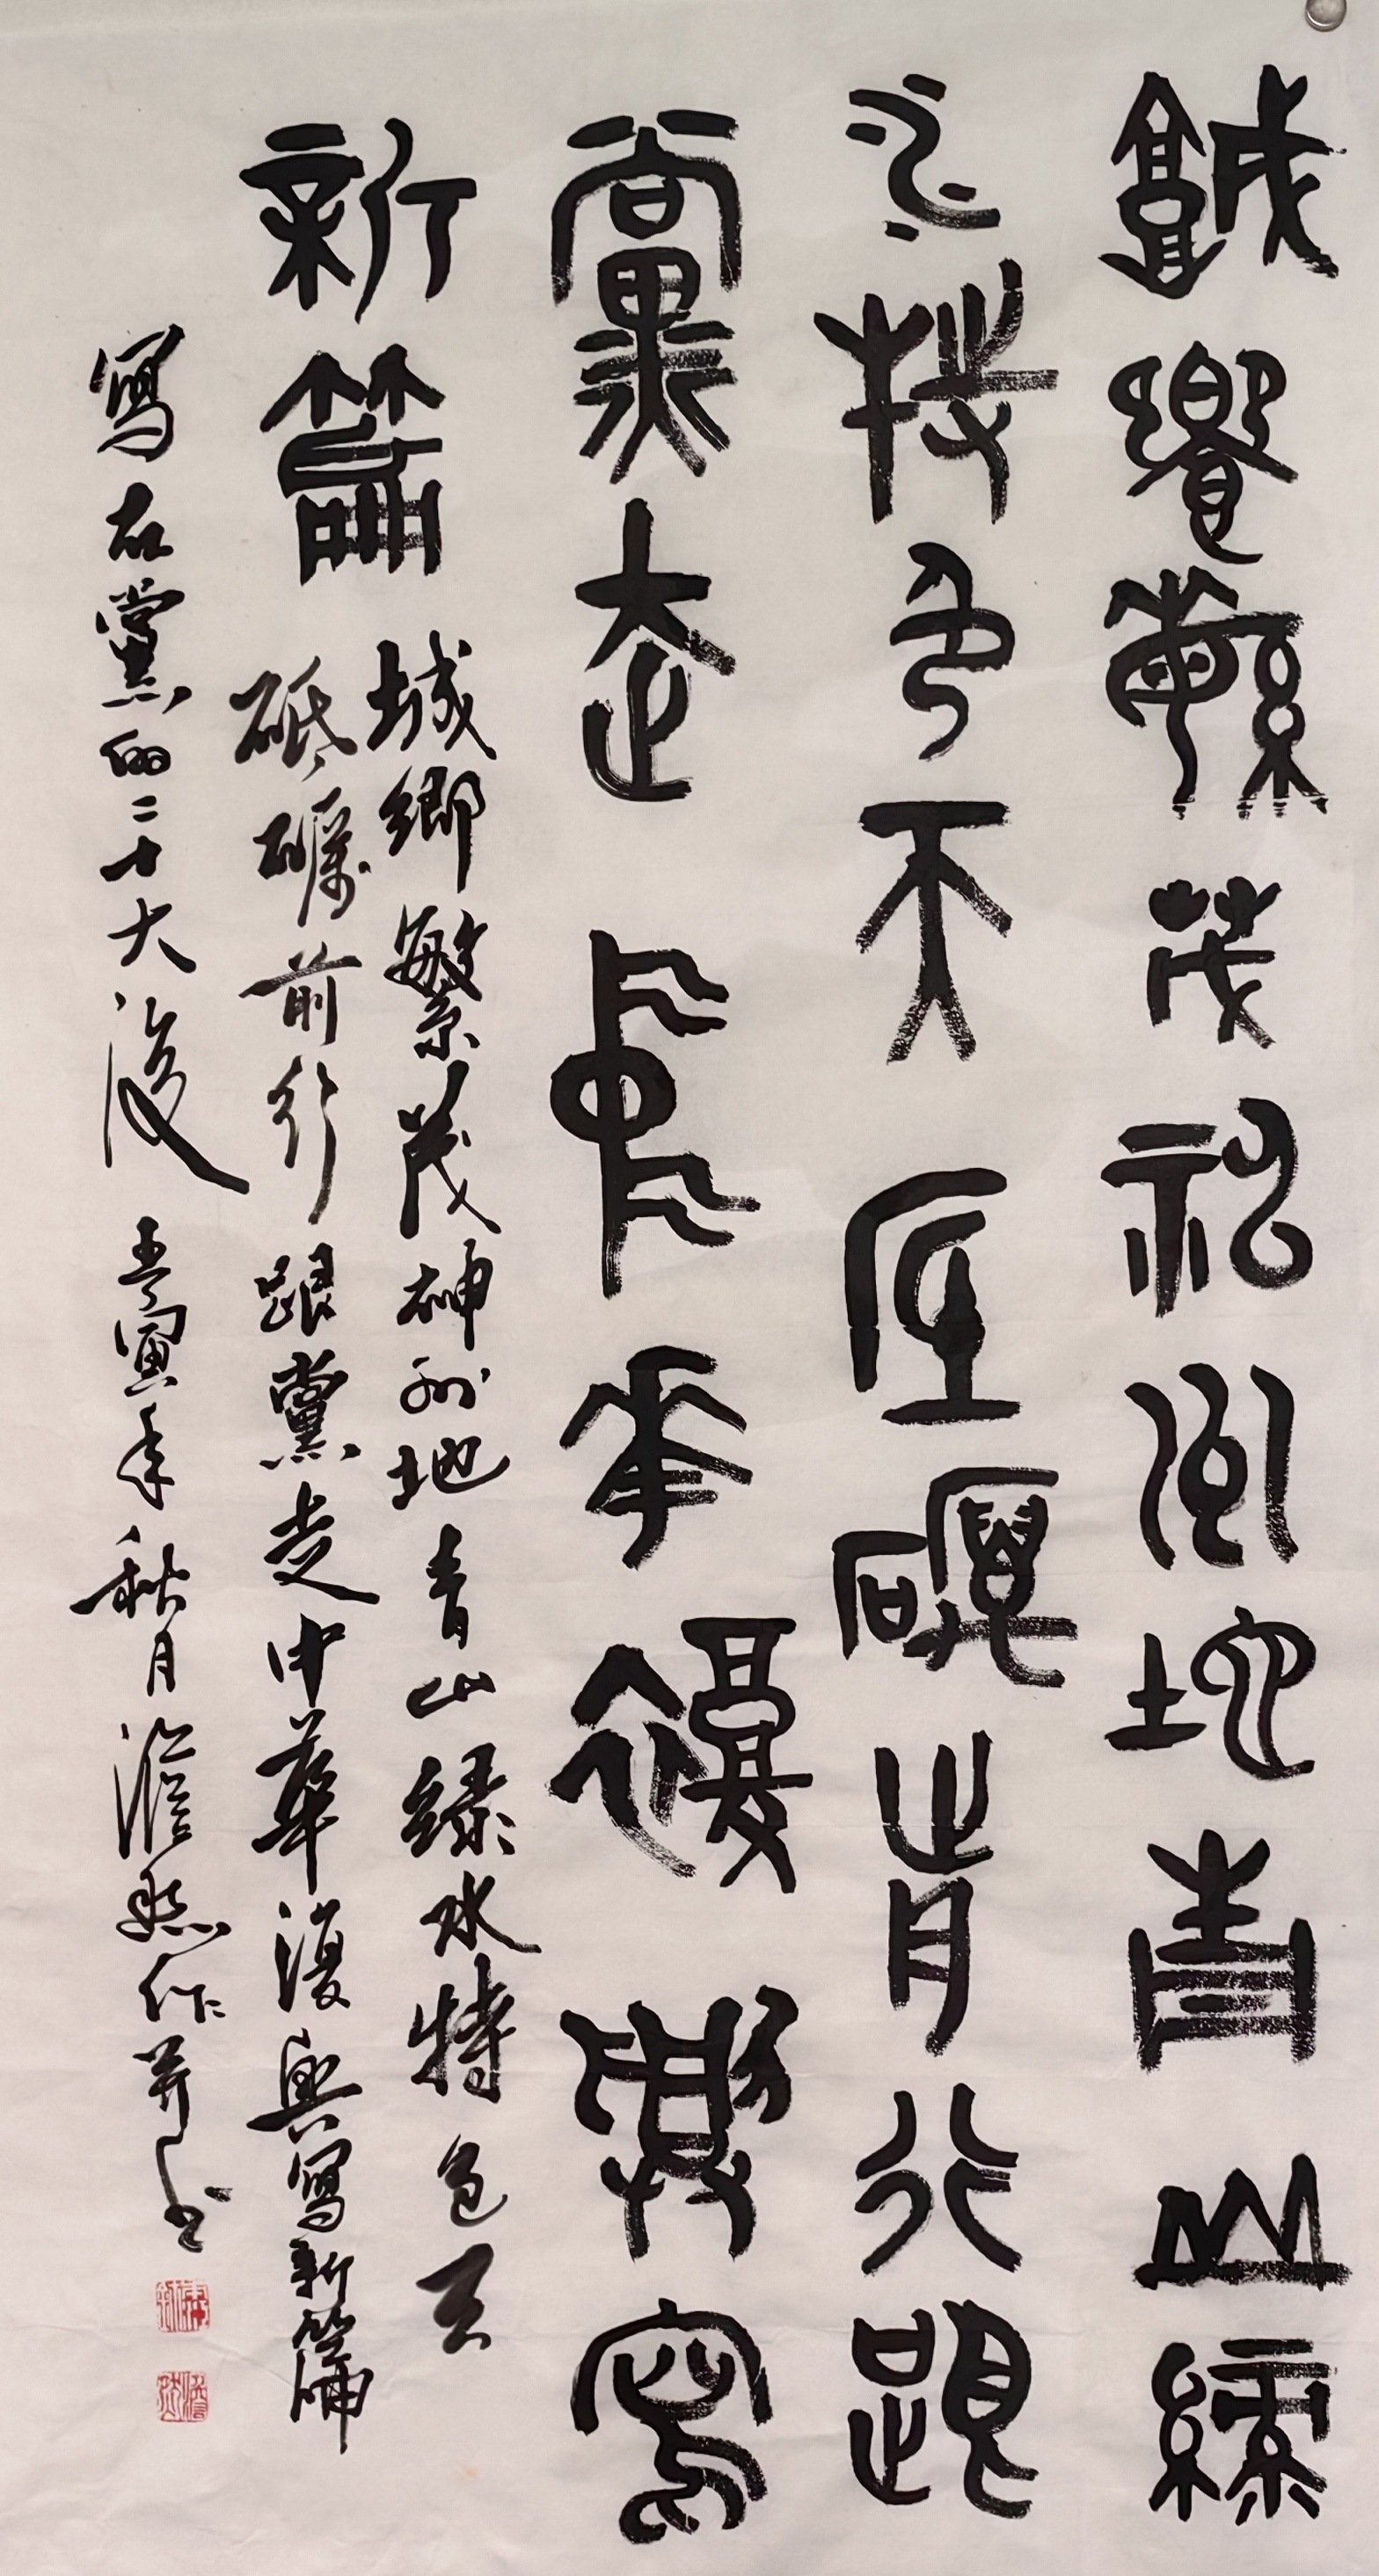 城鄉繁茂神州地青山綠
水特色天砥礪前行跟
黨走中華復興寫
新篇
城鄉繁茂神州地青山綠水特色天
砥礪前行跟黨走中華復興寫新篇
寫在黨的二十大後 壬寅年秋月澹然作并书